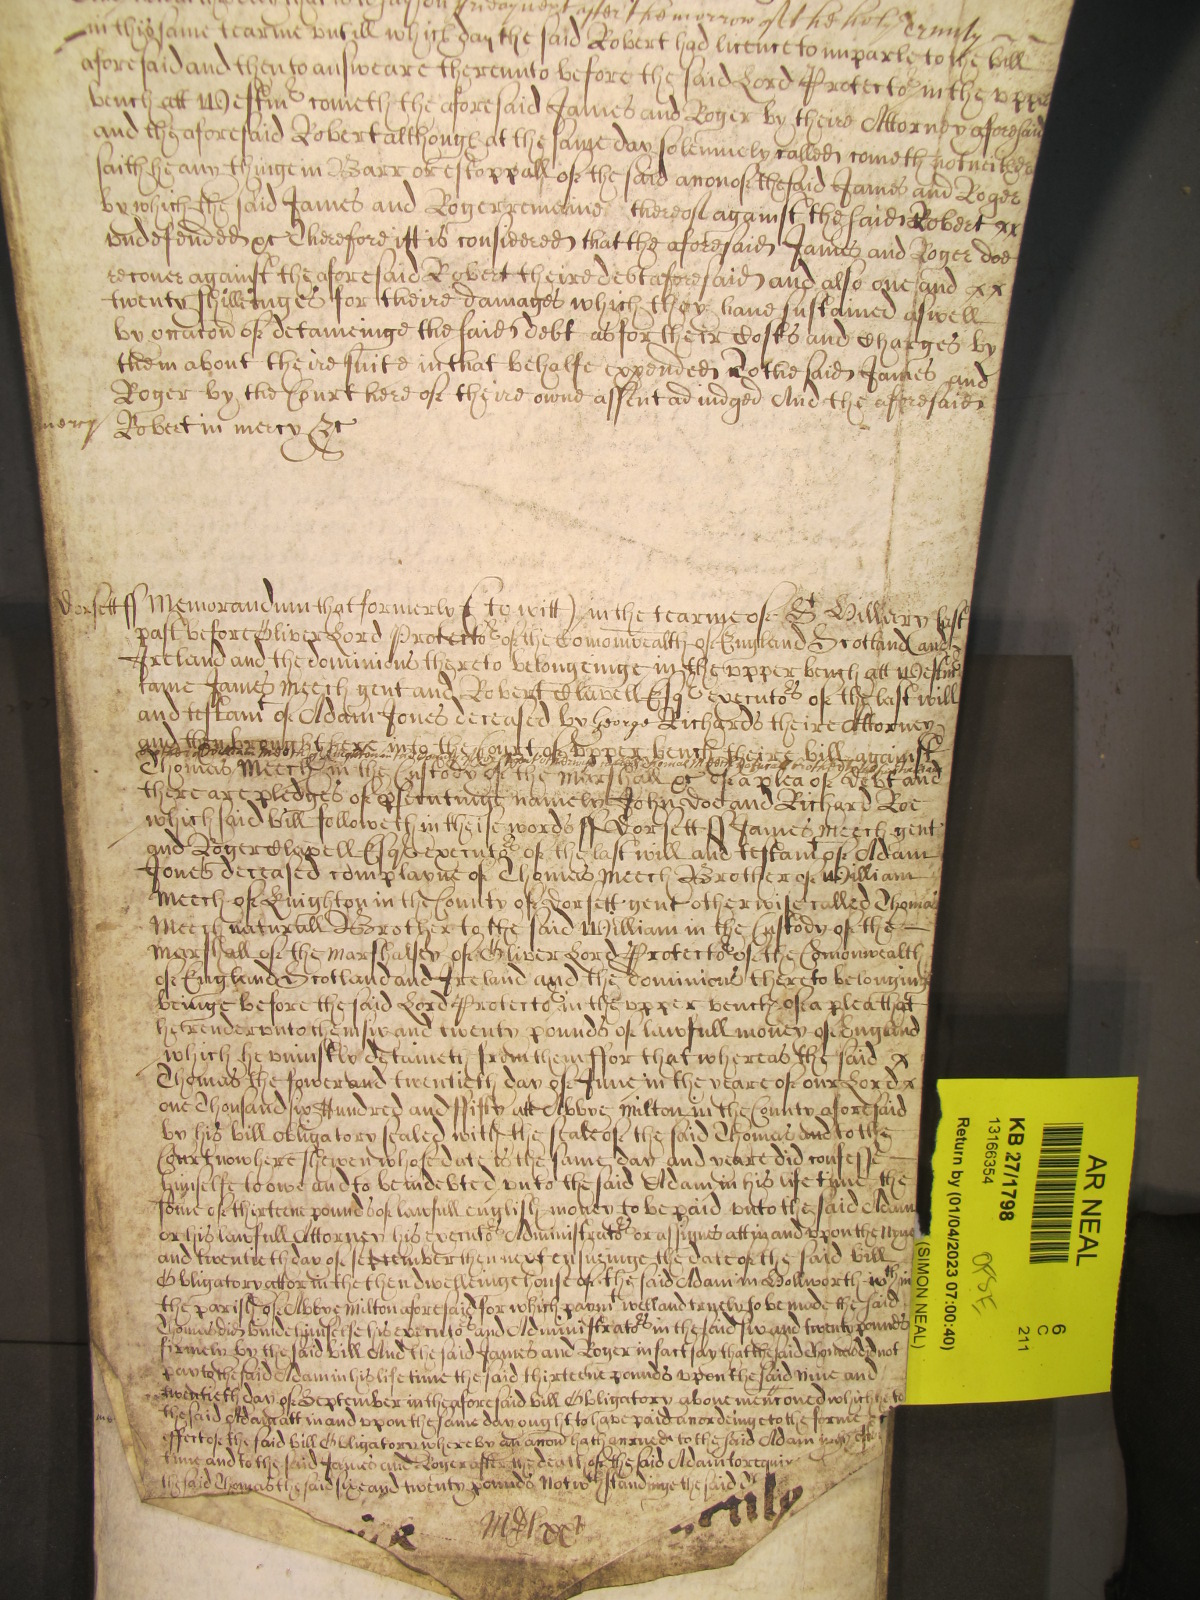 in this same tearme untill which day the said Robert had licence to imparle to the bill
aforesaid and then to answeare thereunto before the said Lord Protector in the upper
bench att Westm cometh the aforesaid James and Roger by theire Attorney aforesaid
and the aforesaid Robert although at the same day solemnely called cometh not neither
saith he any thinge in Barr or estoppall of the said accon of the said James and Roger
by which the said James and Roger remaine thereof against the said Robert xx
undefended &c Therefore itt is considered that the aforesaid James and Roger doe
recover against the aforesaid Robert theire debt aforesaid and also one and xx
twenty shillinges for theire damages which they have sustained aswell
by occacon of detaineinge the said debt as for their Costs and Charges by
them about theire suite in that behalfe expended To the said James and
Roger by the Court here of theire owne assent adiudged And the aforesaid
mercy Robert in mercy &c
Dorsett ss Memorandum that formerly (to witt) in the tearme of St Hillary last
past before Oliver Lord Protector of the Comonwealth of England Scotland and
Ireland and the dominions thereto belongeinge in the upper bench att Westm
came James Meech gent and Robert Clavell Esqr executors of the last will
and testamt of Adam Jones deceased by George Richards theire Attorney
and then brought here into the Court of Upper bench theire bill against
Thomas Meech in the Custody of the Marshall &c of a plea of debt and
there are pledges of psecutinge namely John Doe and Richard Roe
which said bill followeth in theise words ss Dorsett ss James Meech gent
and Roger Clavell Esqr executors of the last will and testamt of Adam
Jones deceased complayne of Thomas Meech Brother of William
Meech of Knighton in the County of Dorsett gent otherwise called Thomas
Meech naturall Brother to the said William in the Custody of the
Marshall of the Marshalsey of Oliver Lord Protector of the Comonwealth
of England Scotland and Ireland and the dominions thereto belonging
beinge before the said Lord Protector in the upper bench of a plea that
he render unto them six and twenty pounds of lawfull money of England
which he uniustly detaineth from them ffor that whereas the said x
Thomas the fower and twentieth day of June in the yeare of our Lord x
one Thousand six Hundred and ffifty att Abbye Milton in the County aforesaid
by his bill obligatory sealed with the seale of the said Thomas and to the
Court now here shewen whose date is the same day and yeare did confesse
himselfe to owe and to be indebted unto the said Adam in his life time the
some of thirteene pounds of lawfull english money to be paid unto the said Adam
or his lawfull Attorney his executors Administrators or assignes att in and upon the Nyne
and twentieth day of September then next ensueinge the date of the said bill
Obligatory att or in the then dwellinge house of the said Adam in Hollworth wthin
the parish of Abbye Milton aforesaid for which paymt well and truely to be made the said
Thomas did binde himselfe his executors and Administrators in the said six and twenty pounds
firmely by the said bill And the said James and Roger in fact say that the said Thomas did not
pay to the said Adam in his life time the said thirteene pounds upon the said nine and
twentieth day of September in the aforesaid bill Obligatory above menconed which he to
the said Adam att in and upon the same day ought to have paid accordeinge to the forme
effect of the said bill Obligatory whereby an accon hath accrued to the said Adam in his life
time and to the said James and Roger after the death of the said Adam to require
the said Thomas the said six and twenty pounds Notwthstandinge the said
AR NEAL
KB 27/1798
13166354
Return by (01/04/2023 07:00:40)
(SIMON NEAL)
6
C
211